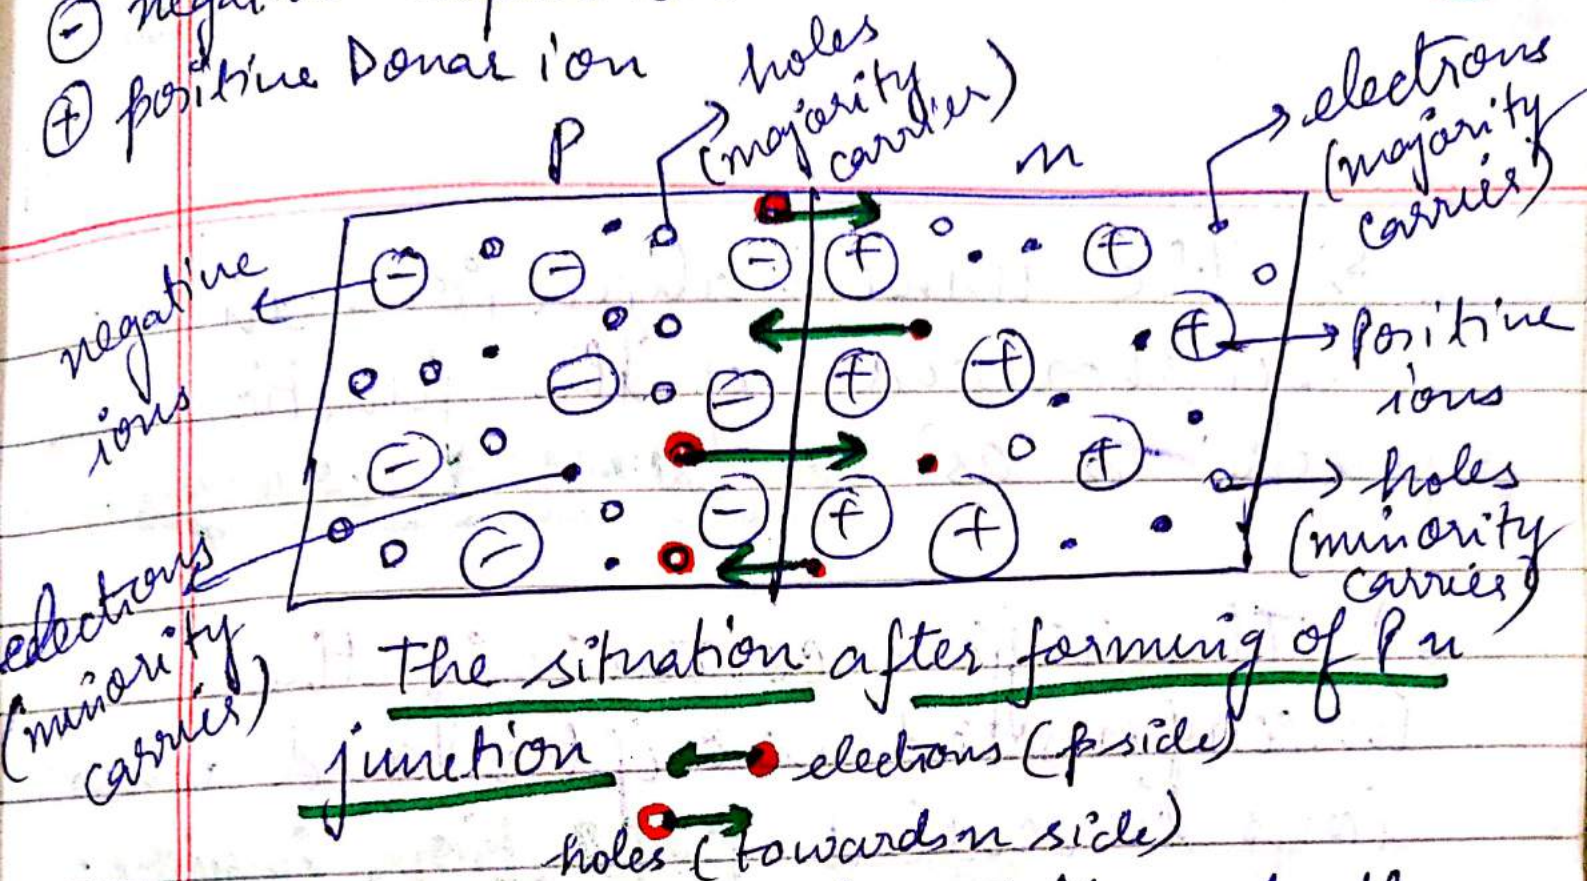 ⊖
⊕ positive Donar ion
holes
(majority
carrier)
electrons
(majority
carrier)
P
n
negative
ions
Positive
ions
holes
(minority
carrier)
electrons
(minority
carrier)
The situation after forming of P n
junction
electrons (p side)
holes (towards n side)